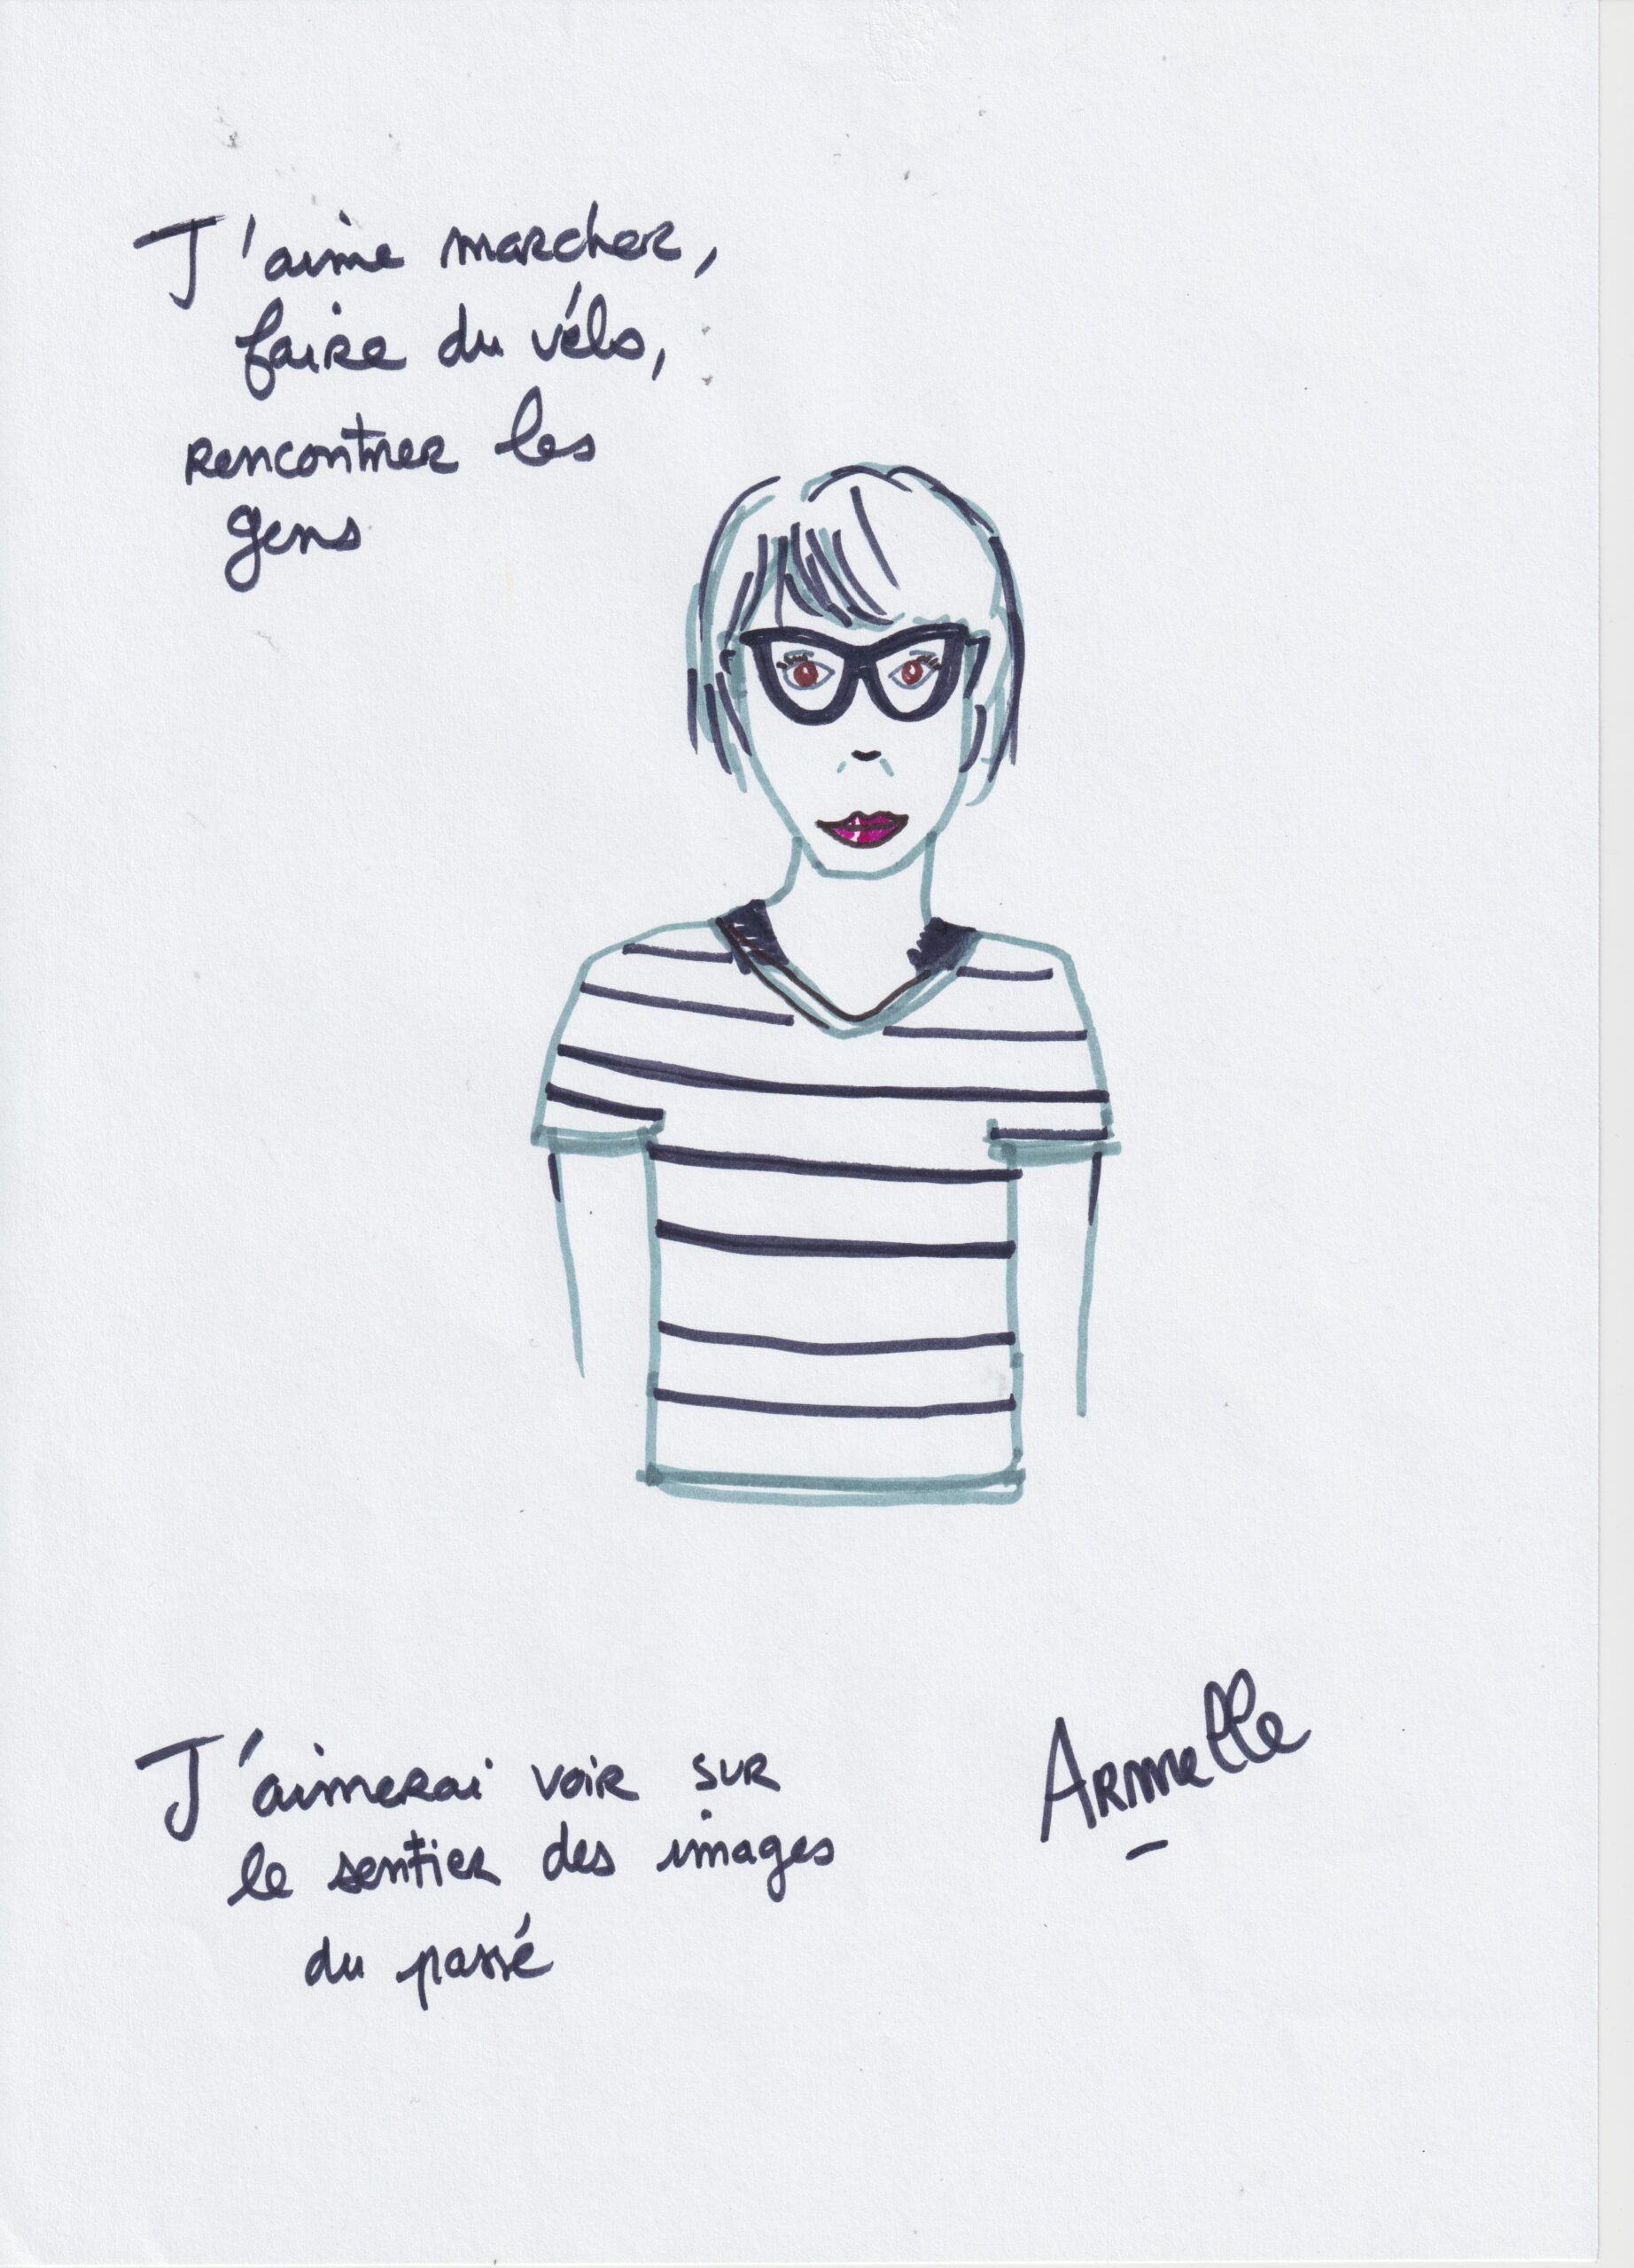 J'aime marcher,
faire du vélo,
rencontrer les
gens
J'aimerai voir sur
le sentier des images
du passé
Armelle